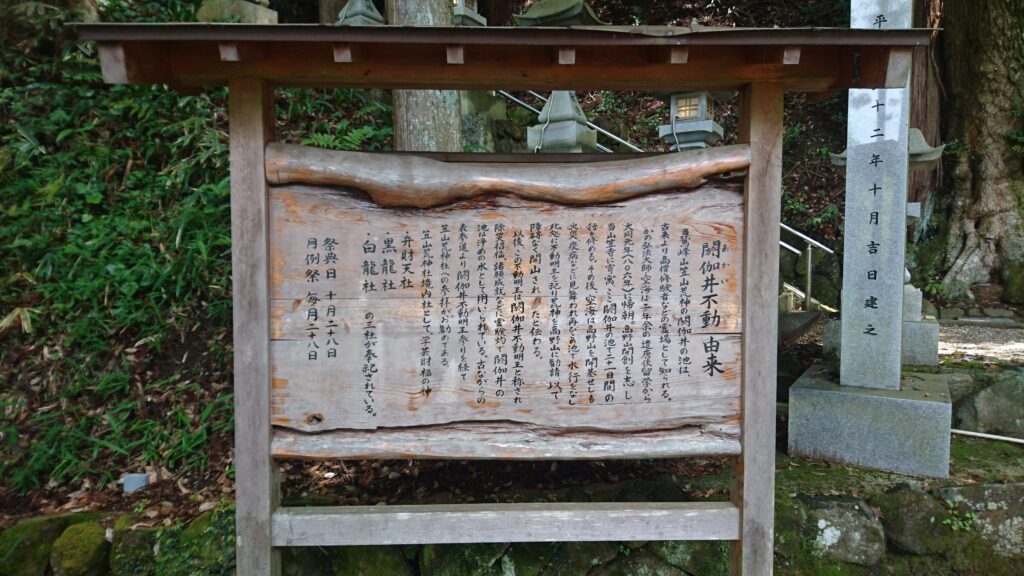 閼伽井不動 由来
あかい
当鷲峰山笠山荒神の閼伽井の池は、
古来より高僧修験者などの霊場として知られる。
かの弘法大師・空海は二年余の遣唐使留学から
大同元年(八〇六年)に帰朝、高野山開創を志し
当山笠寺に寄寓、ここ閼伽井の池で二十一日間の
行を修める。その後、空海は高野山を開基せしも
火災、疫病などに見舞われ再びこの池で水行をなし
此処に不動明王を祀れ荒神を高野山に勧請、以て
障碍なく開山されたのだと伝わる。
以後、この不動明王は閼伽井不動明王と称され
除災招福、諸願成就などに霊験灼で閼伽井の
池は浄めの水として用いられている。古ながらの
表参道より閼伽井不動明王参りを経て
笠山荒神社への参拝がお勧めである。
笠山荒神社境内社として、学芸財福の神
・弁財天社
・黒龍社
・白龍社 の三社が奉祀されている。
祭典日 十月二十八日
月例祭 毎月二十八日
平
十二年十月吉日建之